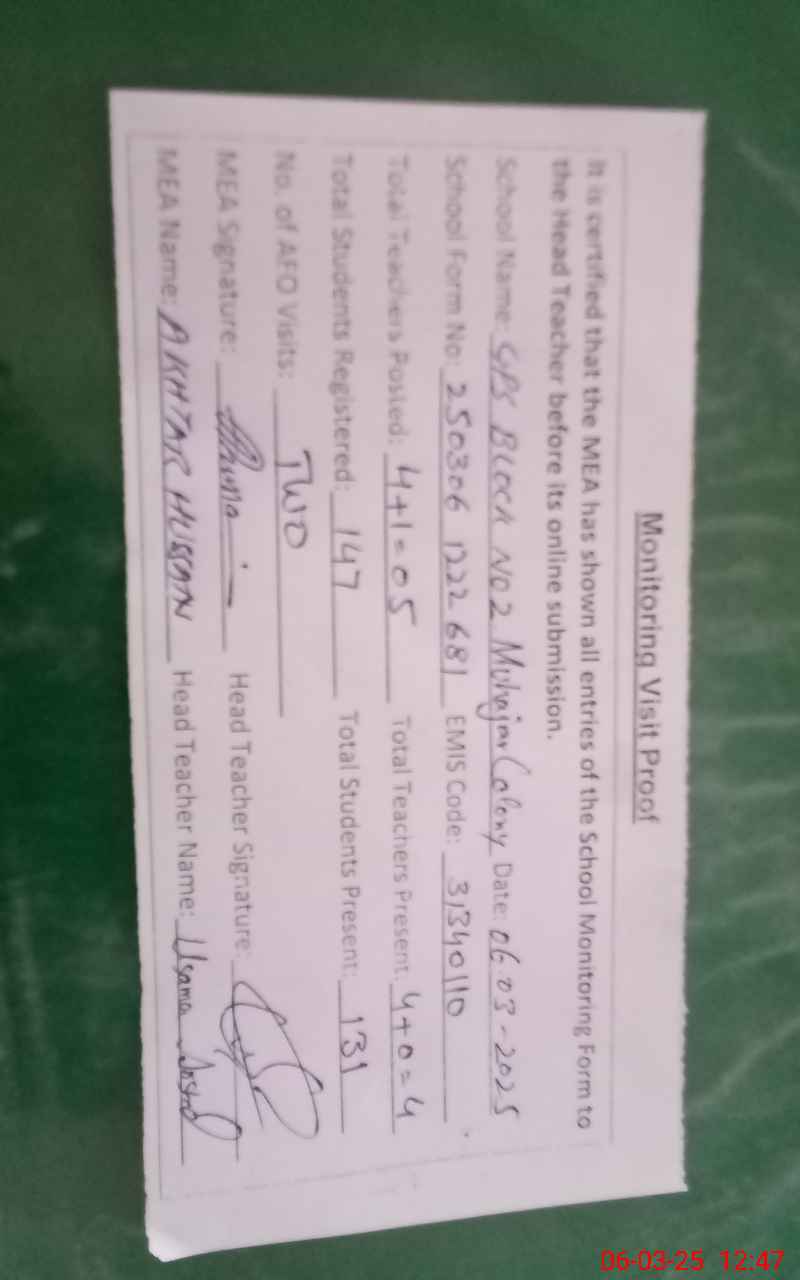 Monitoring Visit Proof
It is certified that the MEA has shown all entries of the School Monitoring Form to
the Head Teacher before its online submission.
School Name: GPS BLOCK NO 2 Muhajar Colony Date: 06-03-2025
School Form No: 250306 1222 681 EMIS Code: 31340110
Total Teachers Posted: 4+1=05 Total Teachers Present: 4+0=4
Total Students Registered: 147 Total Students Present: 131
No. of AEO Visits: TWO
MEA Signature: Head Teacher Signature:
MEA Name: AKHTAR HUSSAIN Head Teacher Name: Usama
06-03-25 12:47